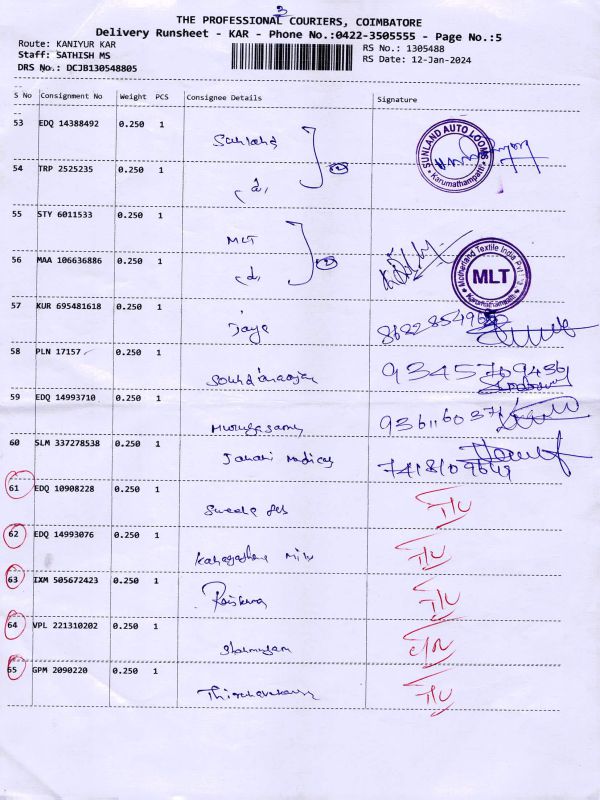 3
THE PROFESSIONAL COURIERS, COIMBATORE
Delivery Runsheet - KAR - Phone No.:0422-3505555 - Page No.:5
Route: KANIYUR KAR
RS No.: 1305488
Staff: SATHISH MS
RS Date: 12-Jan-2024
DRS No.: DCJB130548805
S No Consignment No Weight PCS Consignee Details Signature
53 EDQ 14388492 0.250 1
Sunland
SUNLAND AUTO LOOMS
Karumathampatti
54 TRP 2525235 0.250 1
2
55 STY 6011533 0.250 1
MLT
Motherland Textile India Pvt Ltd
MLT
Karumathampatti
56 MAA 106636886 0.250 1
2
57 KUR 695481618 0.250 1
Jaya
58 PLN 17157 0.250 1
93457 09436
59 EDQ 14993710 0.250 1
Murugasamy
9361160371
60 SLM 337278538 0.250 1
Janani Medical
7418109649
61 EDQ 10908228 0.250 1
62 EDQ 14993076 0.250 1
63 IXM 505672423 0.250 1
64 VPL 221310202 0.250 1
65 GPM 2090220 0.250 1